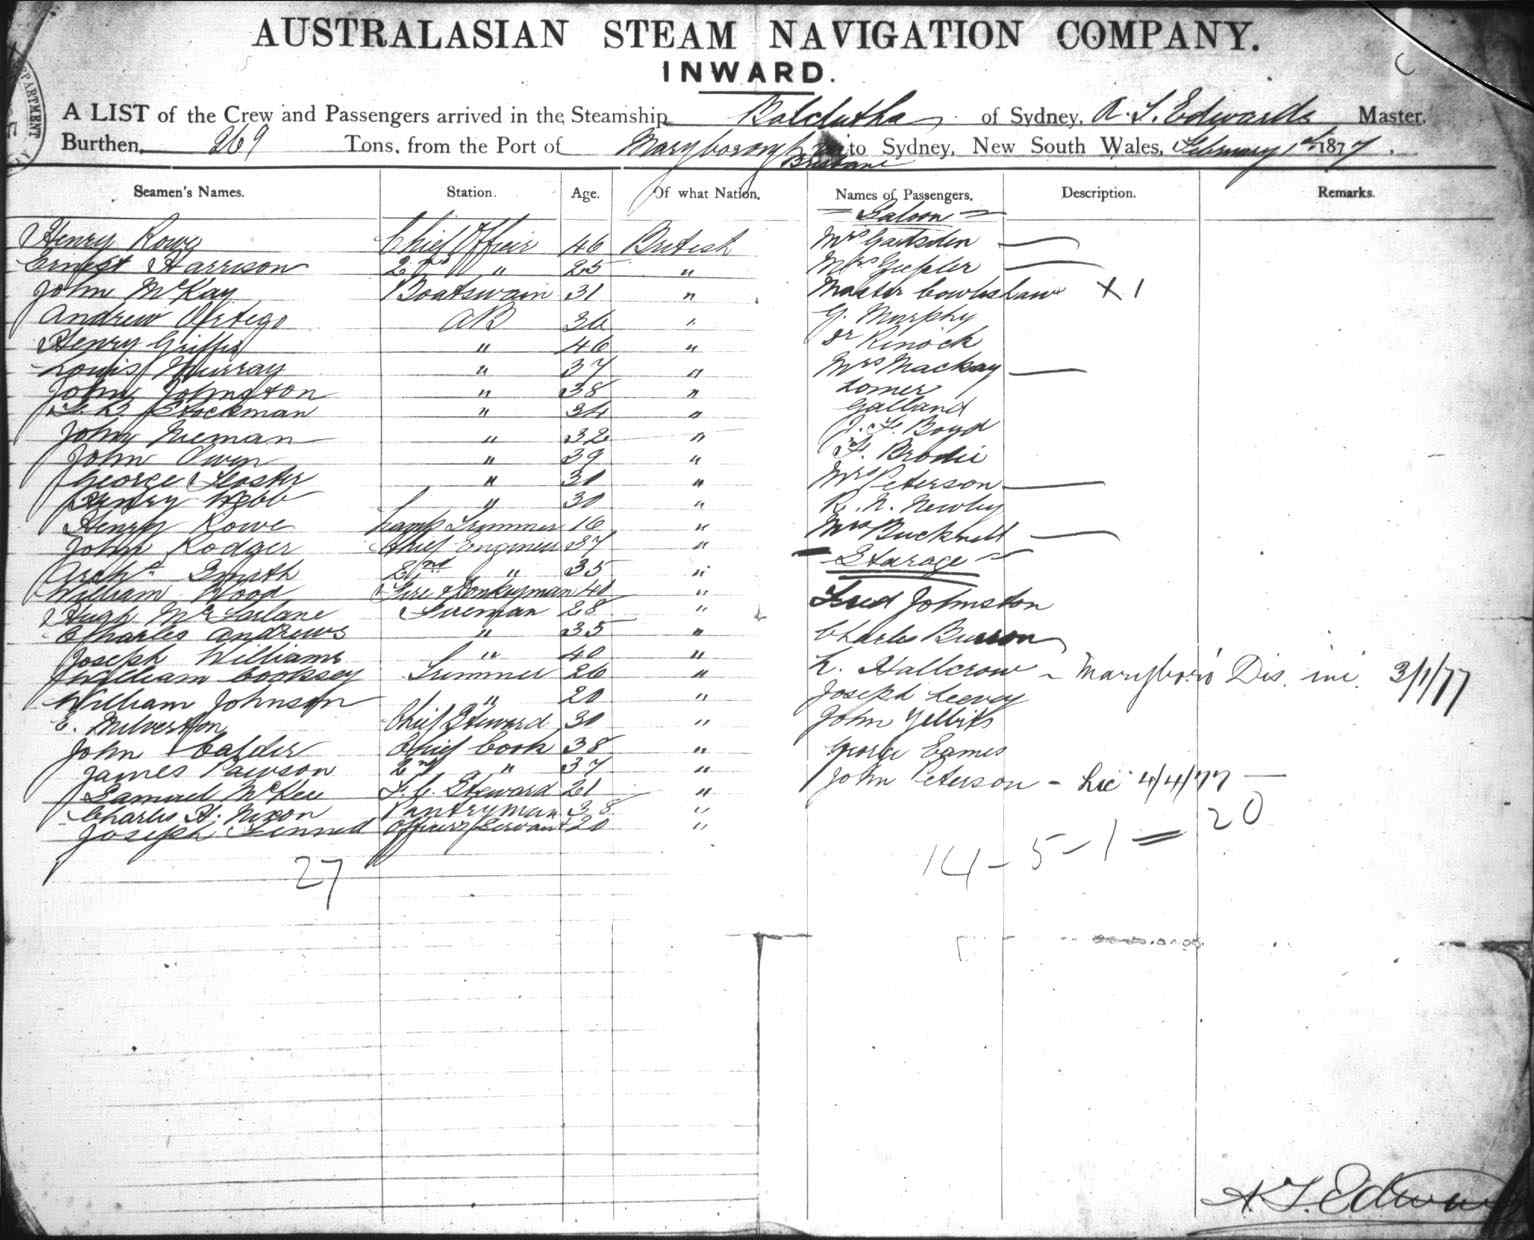 AUSTRALASIAN STEAM NAVIGATION COMPANY.
INWARD.
A LIST of the Crew and Passengers arrived in the Steamship Balclutha of Sydney, A. T. Edwards Master.
Burthen, 269 Tons, from the Port of Maryborough via Brisbane to Sydney, New South Wales, February 1st 1877.
Seamen's Names. Station. Age. Of what Nation. Names of Passengers. Description. Remarks.
Saloon
Henry Rowe Chief Officer 46 British Mrs Gaitsden
Ernest Harrison 2nd " 25 " Mrs
John McKay Boatswain 31 " Master Cowlishaw X 1
Andrew Ortego AB 36 " G. Murphy
Henry Griffis " 46 " Dr Kinock
Louis Murray " 37 " Mrs Mackay
John Johnston " 38 " Lomer
Stockman " 34 " Galland
John Nieman " 32 " J. F. Boyd
John Owen " 39 " F. Brodie
George Foster " 31 " Mrs Peterson
Henry Webb " 30 " R. N. Newby
Henry Rowe Lamp Trimmer 16 " Mrs Bucknell
John Rodger Chief Engineer 37 "
Stearage
Archd Smith 2nd " 35 "
William Wood Fire & Donkeyman 40 " Fred Johnston
Hugh McFarlane Fireman 28 "
Charles Andrews " 35 " Charles Burson
Joseph Williams " 40 " L. Hallcrow - Maryboro' Dis. 3/1/77
William Cooksey Trimmer 26 "
William Johnson " 20 " Joseph Leevey
E. Milverton Chief Steward 30 " John
John Calder Chief Cook 38 " George Eames
James Pawson 2nd " 37 " John Peterson - Lic 4/4/77
Samuel McKee F. C. Steward 21 "
Charles H. Nixon Pantryman 38 "
Joseph Fennell Officers Servant 20 "
14 - 5 - 1 = 20
27
A. T. Edwards